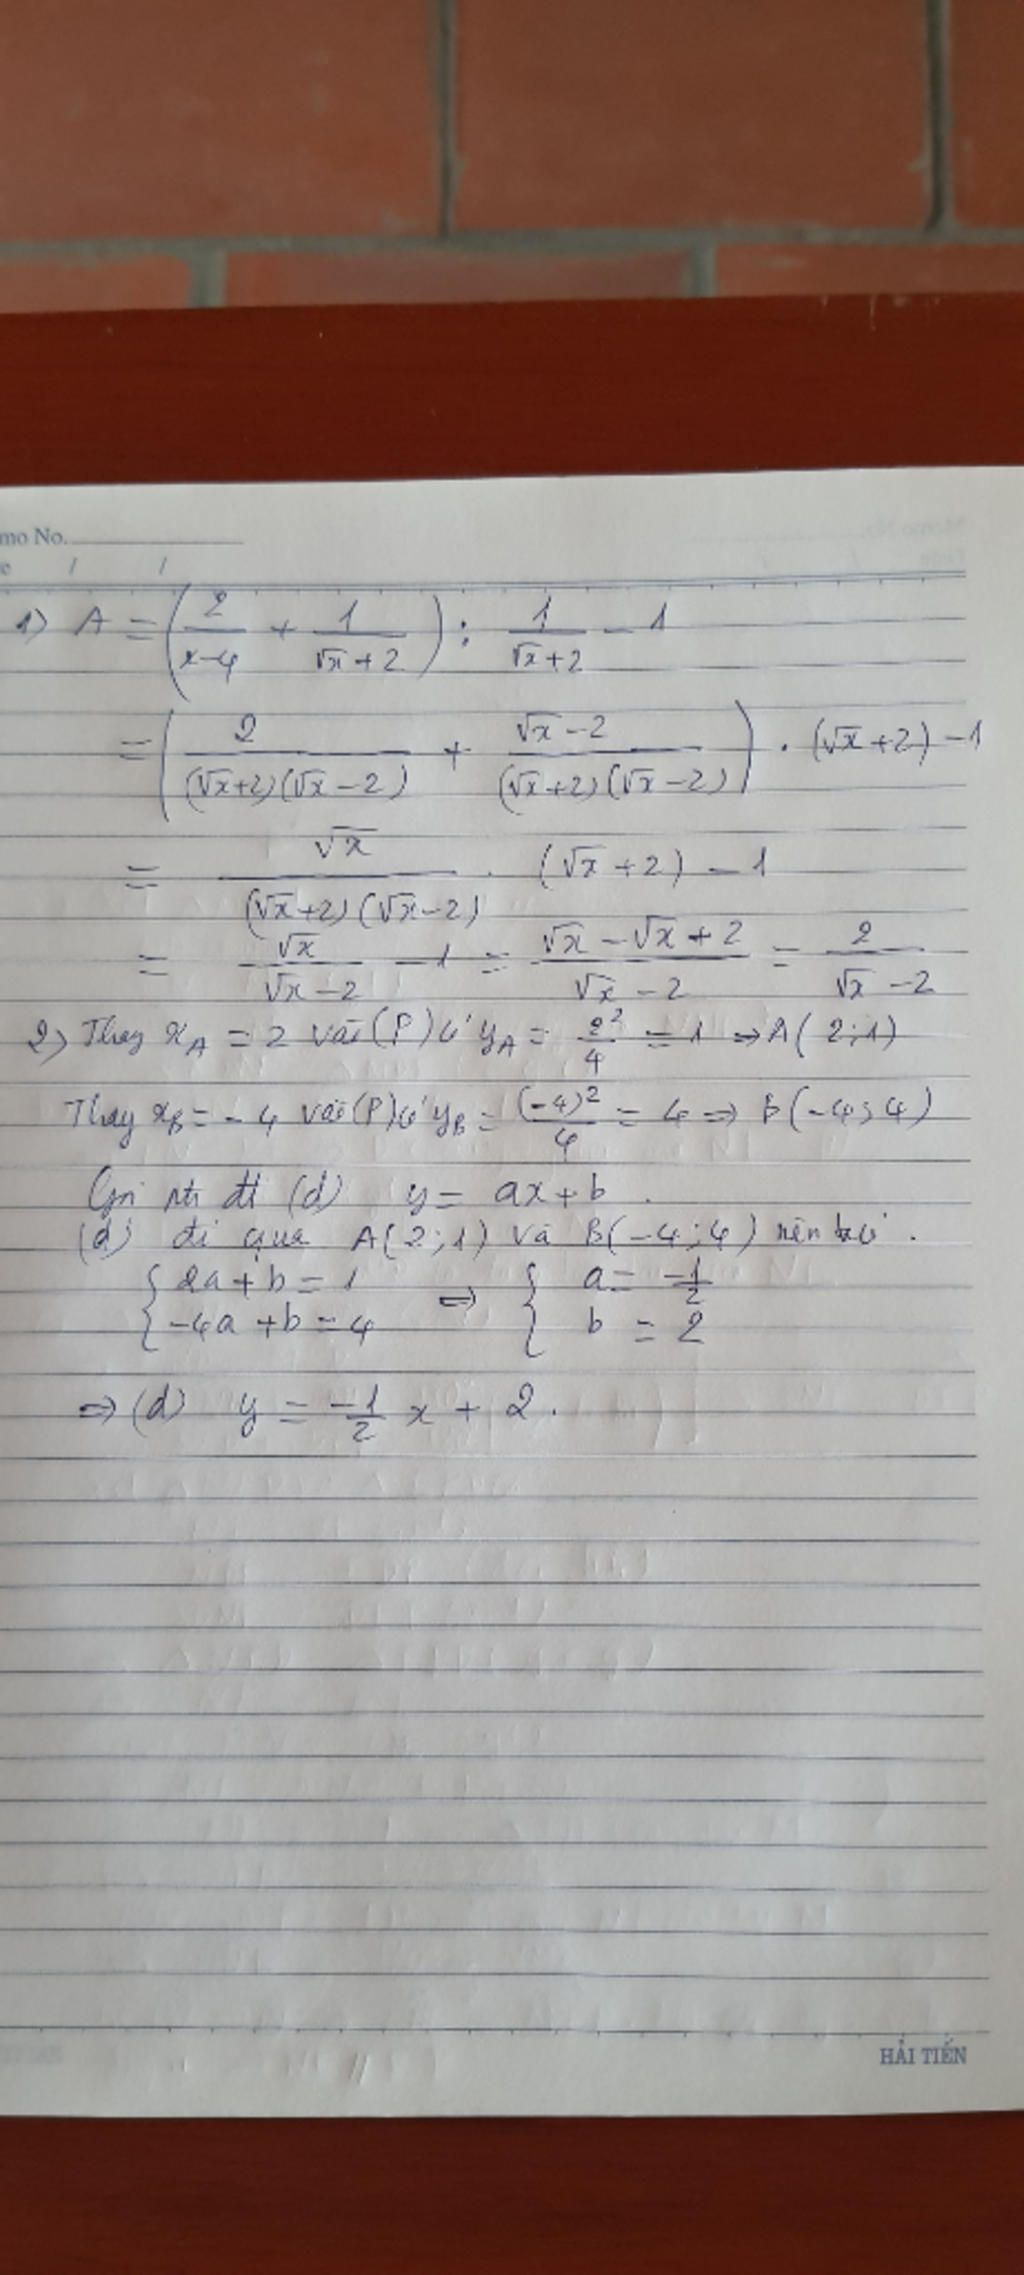 mo No.
e / /
1) A = (2/(x-4) + 1/(√x+2)) : 1/(√x+2) - 1
= (2/((√x+2)(√x-2)) + (√x-2)/((√x+2)(√x-2))) . (√x+2) - 1
= √x/((√x+2)(√x-2)) . (√x+2) - 1
= √x/(√x-2) - 1 = (√x-√x+2)/(√x-2) = 2/(√x-2)
2) Thay x_A = 2 vào (P) có y_A = 2²/4 = 1 => A(2;1)
Thay x_B = -4 vào (P) có y_B = (-4)²/4 = 4 => B(-4;4)
Gọi đt (d) y = ax+b .
(d) đi qua A(2;1) và B(-4;4) nên ta có .
{2a+b=1 => {a = -1/2
{-4a+b=4 {b = 2
=> (d) y = -1/2 x + 2 .
HẢI TIẾN